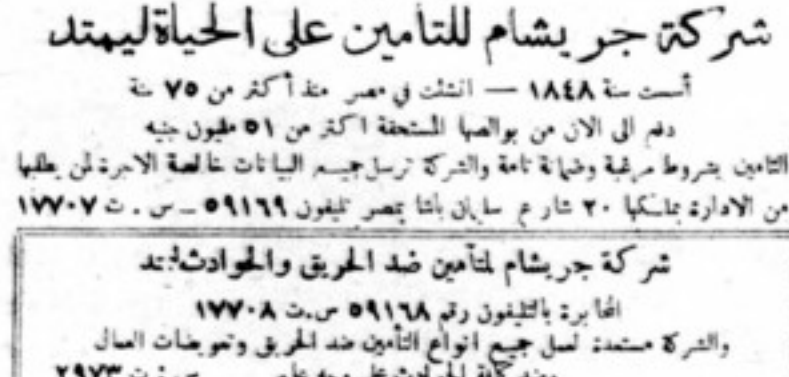 شركة جريشام للتأمين على الحياة ليمتد
أسست سنة ١٨٤٨ — انشئت في مصر منذ أكثر من ٧٥ سنة
دفع الى الان من بوالصها المستحقة اكثر من ٥١ مليون جنيه
التامين بشروط مرغبة وضمانة تامة والشركة ترسل جميع البيانات خالصة الاجرة لمن يطلبها
من الادارة بملكها ٢٠ شارع سليمان باشا بمصر تليفون ٥٩١٦٩ - س . ت ١٧٧٠٧
شركة جريشام لتأمين ضد الحريق والحوادث ليمتد
المخابرة بالتليفون رقم ٥٩١٦٨ س.ت ١٧٧٠٨
والشركة مستعدة لعمل جميع انواع التأمين ضد الحريق وتعويضات العمال
الحوادث على س . ت ٢٩٧٣